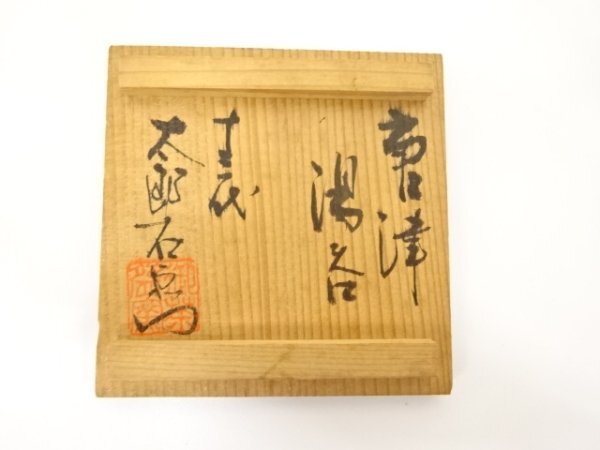 唐津
湯呑
十三代
太郎右衛門